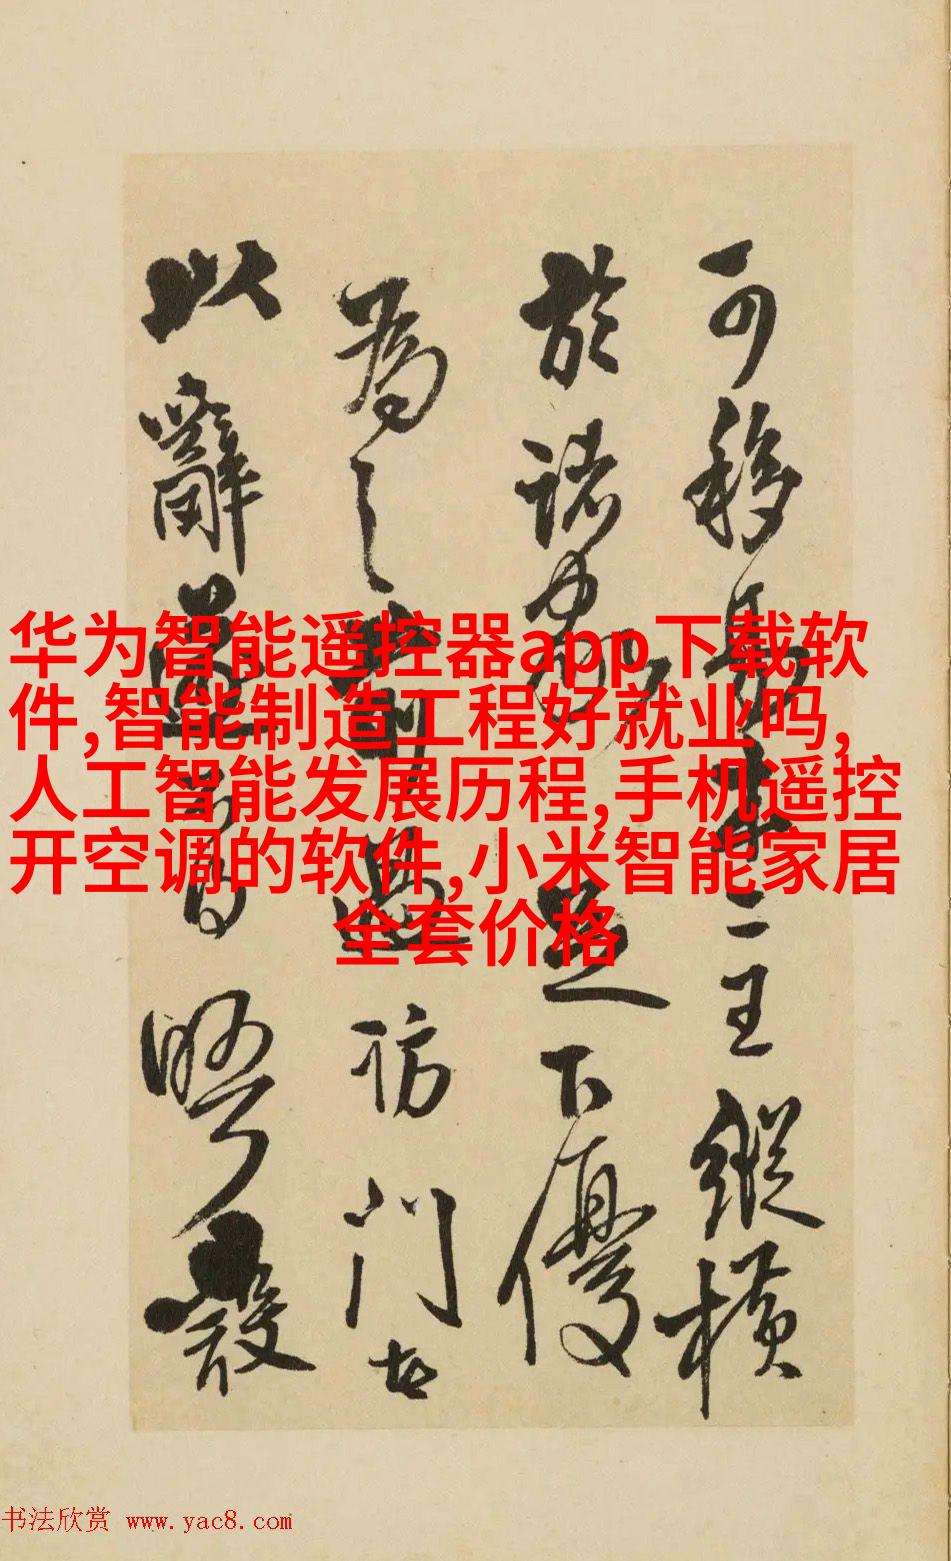 可移二王縱橫
於諸下優
為之訪門
以辭
华为智能遥控器app下载软
件,智能制造工程好就业吗,
人工智能发展历程,手机遥控
开空调的软件,小米智能家居
全套价格
书法欣赏 www.yac8.com